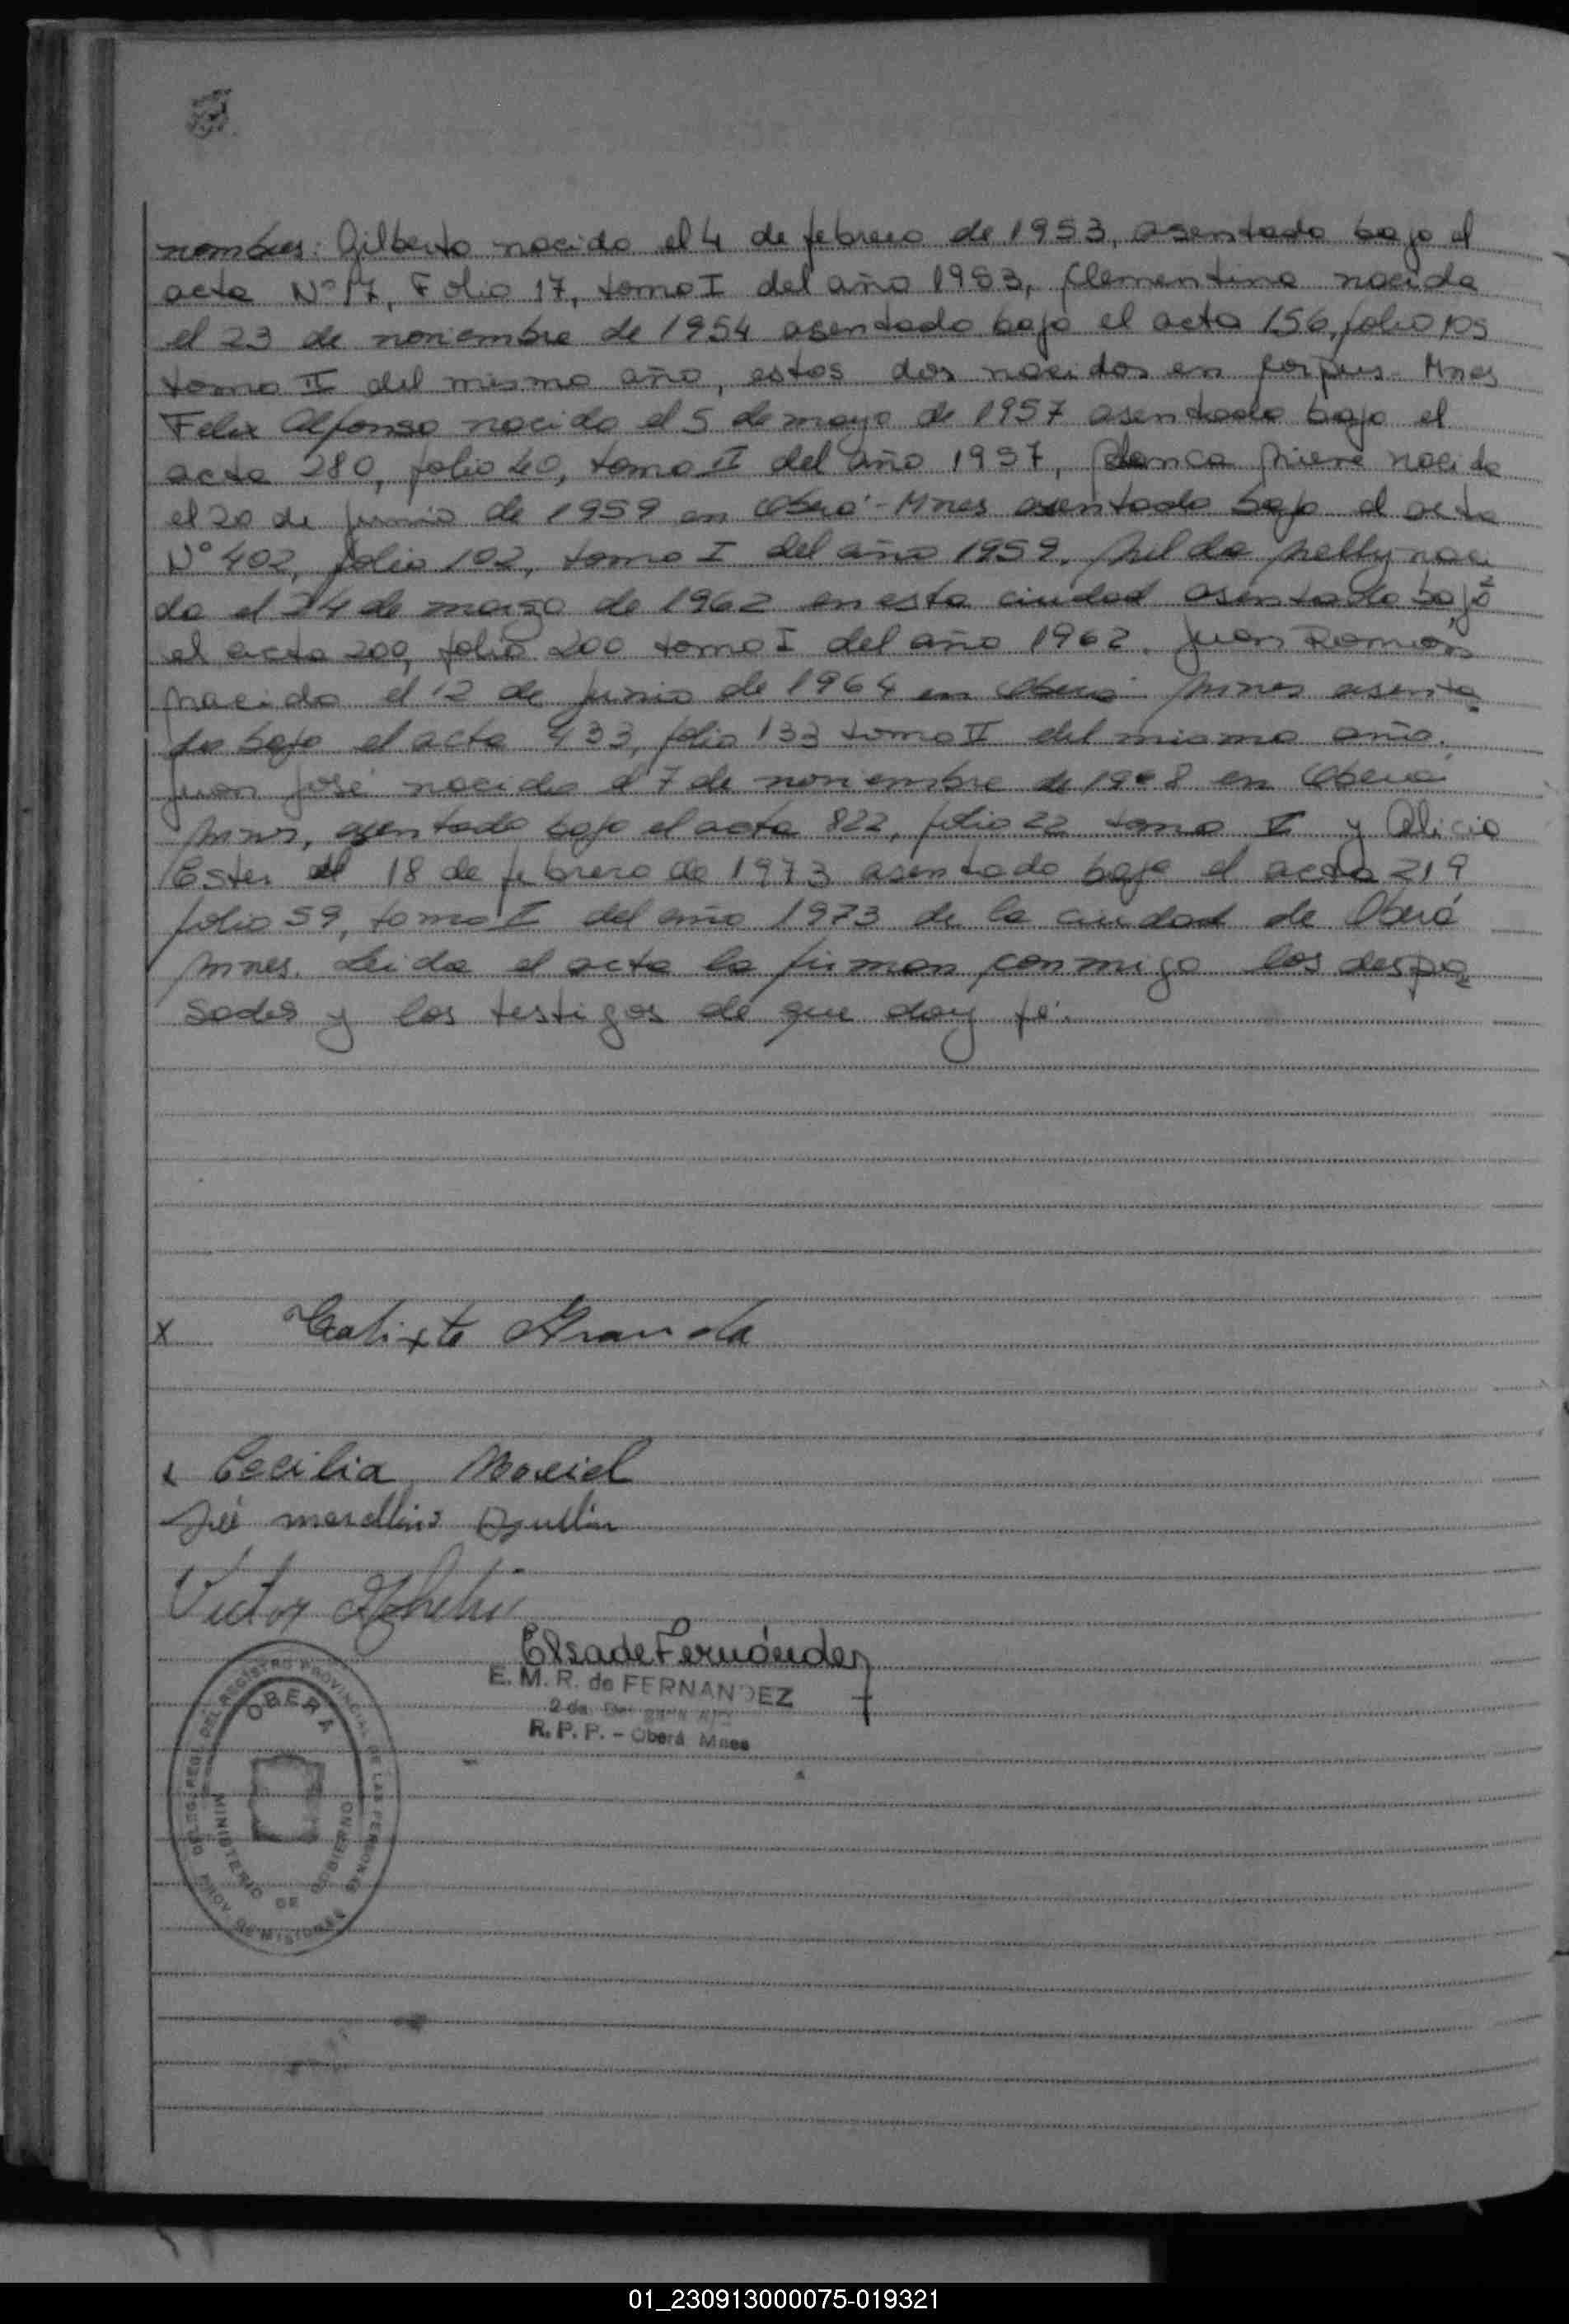 nombres: Gilberto nacido el 4 de febrero de 1953, asentado bajo el
acta N° 17, Folio 17, tomo I del año 1953, Clementina nacida
el 23 de noviembre de 1954 asentado bajo el acta 156, folio 105
tomo II del mismo año, estos dos nacidos en Corpus Mnes
Felix Alfonso nacido el 5 de mayo de 1957 asentado bajo el
acta 280, folio 40, tomo II del año 1957, Blanca nacida
el 20 de junio de 1959 en Oberá-Mnes asentado bajo el acta
N° 402, folio 102, tomo I del año 1959, Nilda Nelly naci
da el 24 de marzo de 1962 en esta ciudad asentado bajo
el acta 200, folio 200 tomo I del año 1962. Juan Ramón
nacido el 12 de junio de 1964 en Oberá Mnes asenta
do bajo el acta 433, folio 133 tomo II del mismo año.
Juan José nacido el 7 de noviembre de 1968 en Oberá
Mnes, asentado bajo el acta 822, folio 22 tomo y Alicia
Ester el 18 de febrero de 1973 asentado bajo el acta 219
folio 59, tomo I del año 1973 de la ciudad de Oberá
Mnes. Leida el acta la firman conmigo los despo
sados y los testigos de que doy fé.
x Calixto Aranda
x Cecilia Maciel
José marcellino
Victor
Elsa de Fernández
E. M. R. de FERNANDEZ
R. P. P. - Oberá Mnes
OBERA
MINISTERIO DE GOBIERNO
DELEG. REGI. DEL REGISTRO PROVINCIAL DE LAS PERSONAS
PROV. DE MISIONES
01_230913000075-019321